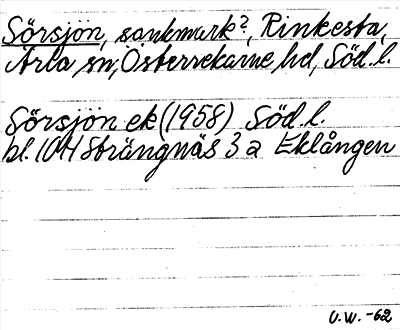 Sörsjön, sankmark?, Rinkesta,
Ärla sn, Österrekarne hd, Söd. l.
Sörsjön ek (1958) Söd. l.
bl. 10H Strängnäs 3 a Eklången
U.W. -62